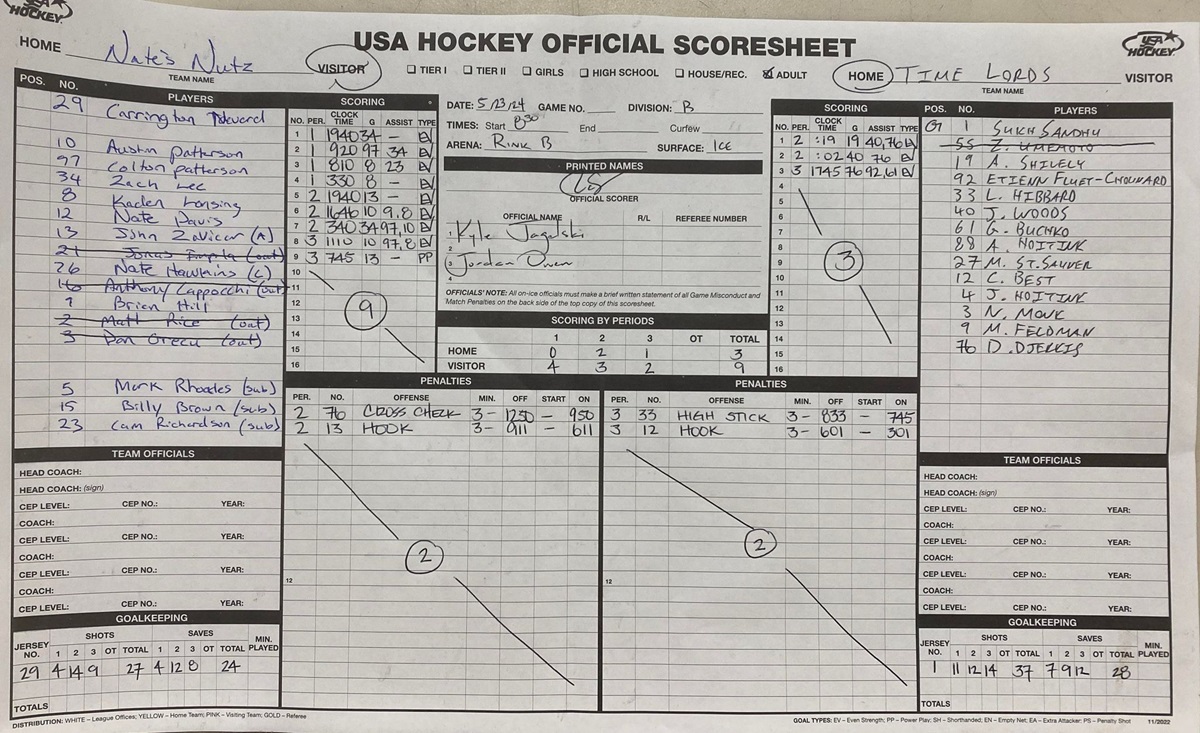 USA HOCKEY
USA HOCKEY OFFICIAL SCORESHEET
USA HOCKEY
HOME Nate's Nutz VISITOR
TEAM NAME
TIER I TIER II GIRLS HIGH SCHOOL HOUSE/REC. ADULT
HOME TIME LORDS VISITOR
TEAM NAME
POS. NO. PLAYERS
29 Carrington
10 Austin Patterson
97 Colton Patterson
34 Zach Lee
8 Kaden Lonsing
12 Nate Davis
13 John Zavicar (A)
21 Jonas (out)
26 Nate Hawkins (C)
16 Anthony Cappocchi (out)
7 Brian Hill
2 Matt Rice (out)
3 Dan Green (out)
5 Mark Rhoades (sub)
15 Billy Brown (sub)
23 Cam Richardson (sub)
SCORING
NO. PER. CLOCK TIME G ASSIST TYPE
1 1 1940 34 - EV
2 1 920 97 34 EV
3 1 810 8 23 EV
4 1 330 8 - EV
5 2 1940 13 - EV
6 2 1646 10 9,8 EV
7 2 340 34 97,10 EV
8 3 1110 10 97,8 EV
9 3 745 13 - PP
10
11
12
13
14
15
16
9
DATE: 5/23/24 GAME NO. DIVISION: B
TIMES: Start 8:30 End Curfew
ARENA: RINK B SURFACE: ICE
PRINTED NAMES
OFFICIAL SCORER
OFFICIAL NAME R/L REFEREE NUMBER
1 Kyle Jagelski
2
3 Jordan Owen
4
OFFICIALS' NOTE: All on-ice officials must make a brief written statement of all Game Misconduct and
Match Penalties on the back side of the top copy of this scoresheet.
SCORING BY PERIODS
1 2 3 OT TOTAL
HOME 0 2 1 3
VISITOR 4 3 2 9
SCORING
NO. PER. CLOCK TIME G ASSIST TYPE
1 2 :19 19 40,76 EV
2 2 :02 40 76 EV
3 3 1745 76 92,61 EV
4
5
6
7
8
9
10
11
12
13
14
15
16
3
POS. NO. PLAYERS
G 1 SUKH SANDHU
55 Z. UMEMOTO
19 A. SHIVELY
92 ETIENN FLUET-CHOUINARD
33 L. HIBBARD
40 J. WOODS
61 G. BUCHKO
88 A. HOITINK
27 M. ST.SAUVER
12 C. BEST
4 J. HOITINK
3 N. MONK
9 M. FELDMAN
76 D. DJEKKIS
PENALTIES
PER. NO. OFFENSE MIN. OFF START ON
2 76 CROSS CHECK 3- 1250 - 950
2 13 HOOK 3- 911 - 611
2
12
PENALTIES
PER. NO. OFFENSE MIN. OFF START ON
3 33 HIGH STICK 3- 833 - 745
3 12 HOOK 3- 601 - 301
2
12
TEAM OFFICIALS
HEAD COACH:
HEAD COACH: (sign)
CEP LEVEL: CEP NO.: YEAR:
COACH:
CEP LEVEL: CEP NO.: YEAR:
COACH:
CEP LEVEL: CEP NO.: YEAR:
COACH:
CEP LEVEL: CEP NO.: YEAR:
GOALKEEPING
JERSEY NO. SHOTS SAVES MIN. PLAYED
1 2 3 OT TOTAL 1 2 3 OT TOTAL
29 4 14 9 27 4 12 8 24
TOTALS
TEAM OFFICIALS
HEAD COACH:
HEAD COACH: (sign)
CEP LEVEL: CEP NO.: YEAR:
COACH:
CEP LEVEL: CEP NO.: YEAR:
COACH:
CEP LEVEL: CEP NO.: YEAR:
COACH:
CEP LEVEL: CEP NO.: YEAR:
GOALKEEPING
JERSEY NO. SHOTS SAVES MIN. PLAYED
1 2 3 OT TOTAL 1 2 3 OT TOTAL
1 11 12 14 37 7 9 12 28
TOTALS
DISTRIBUTION: WHITE – League Offices; YELLOW – Home Team; PINK – Visiting Team; GOLD – Referee
GOAL TYPES: EV – Even Strength; PP – Power Play; SH – Shorthanded; EN – Empty Net; EA – Extra Attacker; PS – Penalty Shot 11/2022